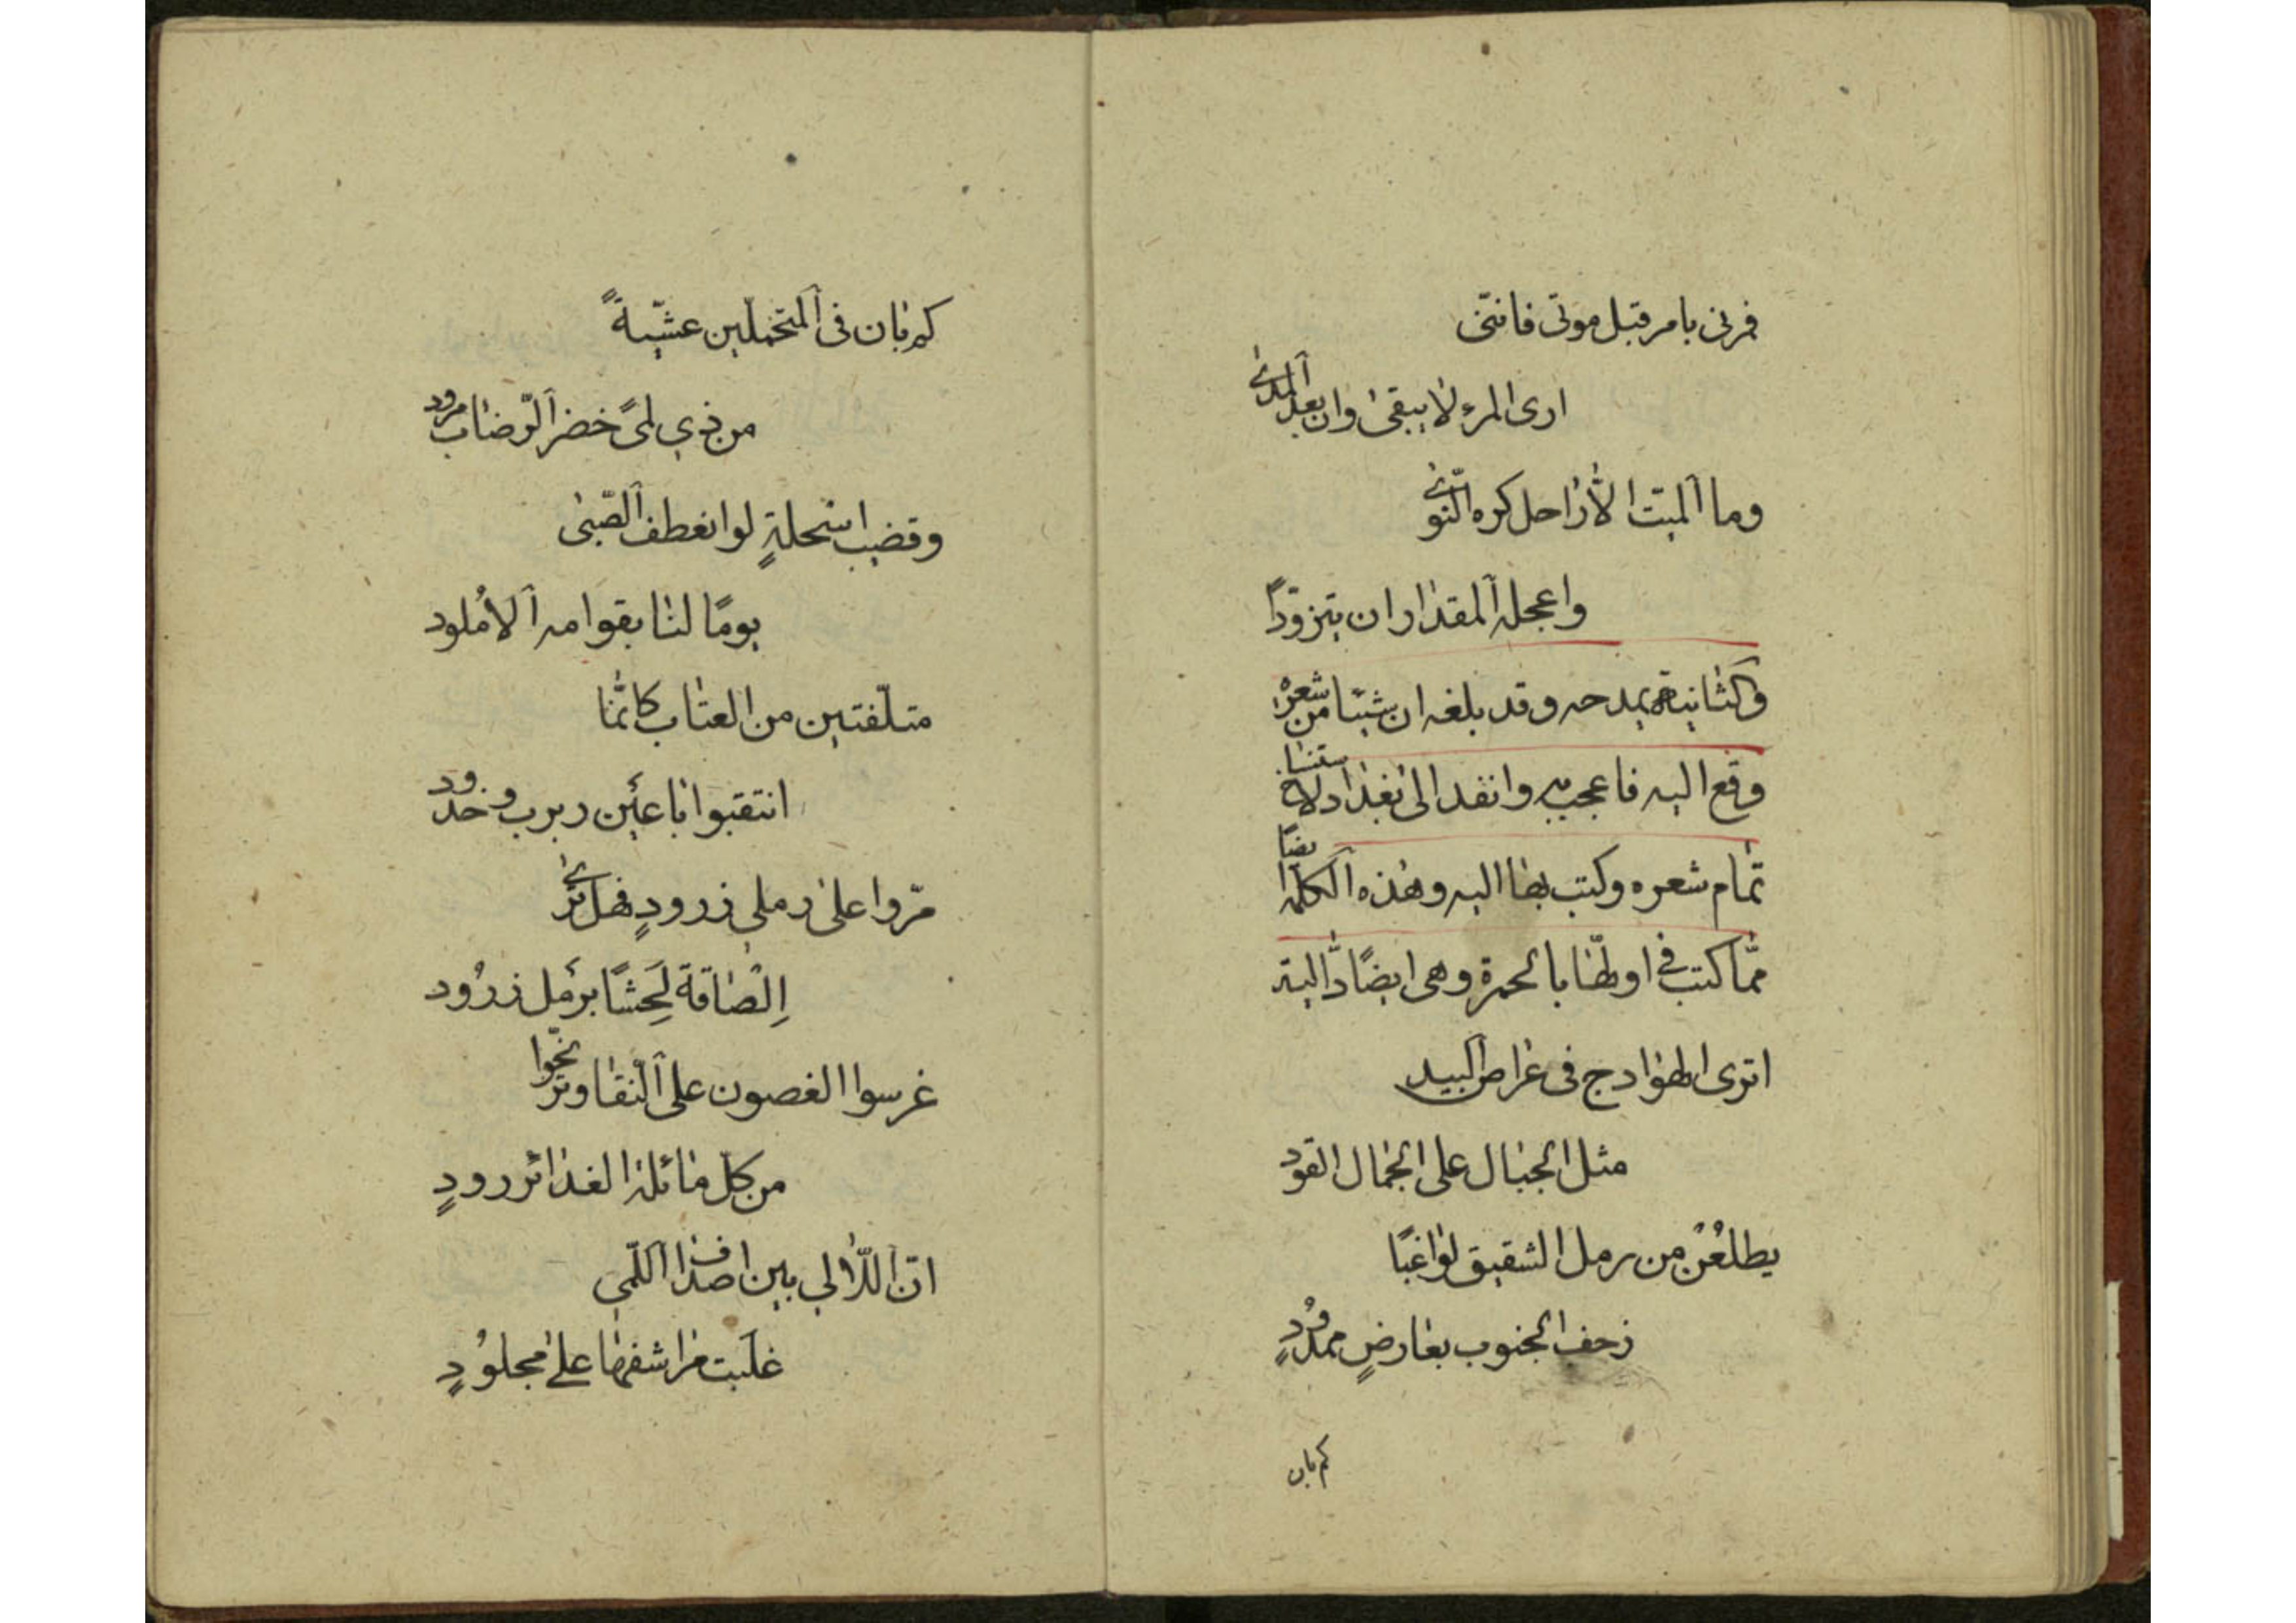 فمرنى بامر قبل موتى فاننى
ارى المرء لا يبقى وان بعد المدى
وما الميت الا راحل كره النوى
واعجله المقدار ان يتزودا
وكتب يمدحه وقد بلغه ان شيئا من شعره
وقع اليه فاعجب به وانفد الى بغداد لاستنساخ
تمام شعره وكتب بها اليه وهذه الكلمة ايضا
مما كتب فى اولها بالحمرة وهى ايضًا دالية
اترى الهوادج فى عراص البيد
مثل الجبال على الجمال القود
يطلعْنَ من رمل الشقيق لواغبًا
زحف الجنوب بعارضٍ ممدودٍ
كم بان
كم بان فى المتحمّلين عشيّةً
من ذي لمىً خضر الرّضاب برود
وقضيب اسحلةٍ لو انعطف الصّبى
يومًا لنا بقوامه الأملود
متلّفتين من العتاب كانّما
انتقبوا باعين ربرب وخدود
مرّوا على رملي زرودٍ فهل ترى
اِلْصَاقَةً لِحَشًا برَمل زرُود
غرسوا الغصون على النّقا وترنّحوا
من كل مائلة الغدائر رودٍ
انّ اللّآلي بين اصداف اللّمي
غلبت مراشفها على مجلوُدٍ